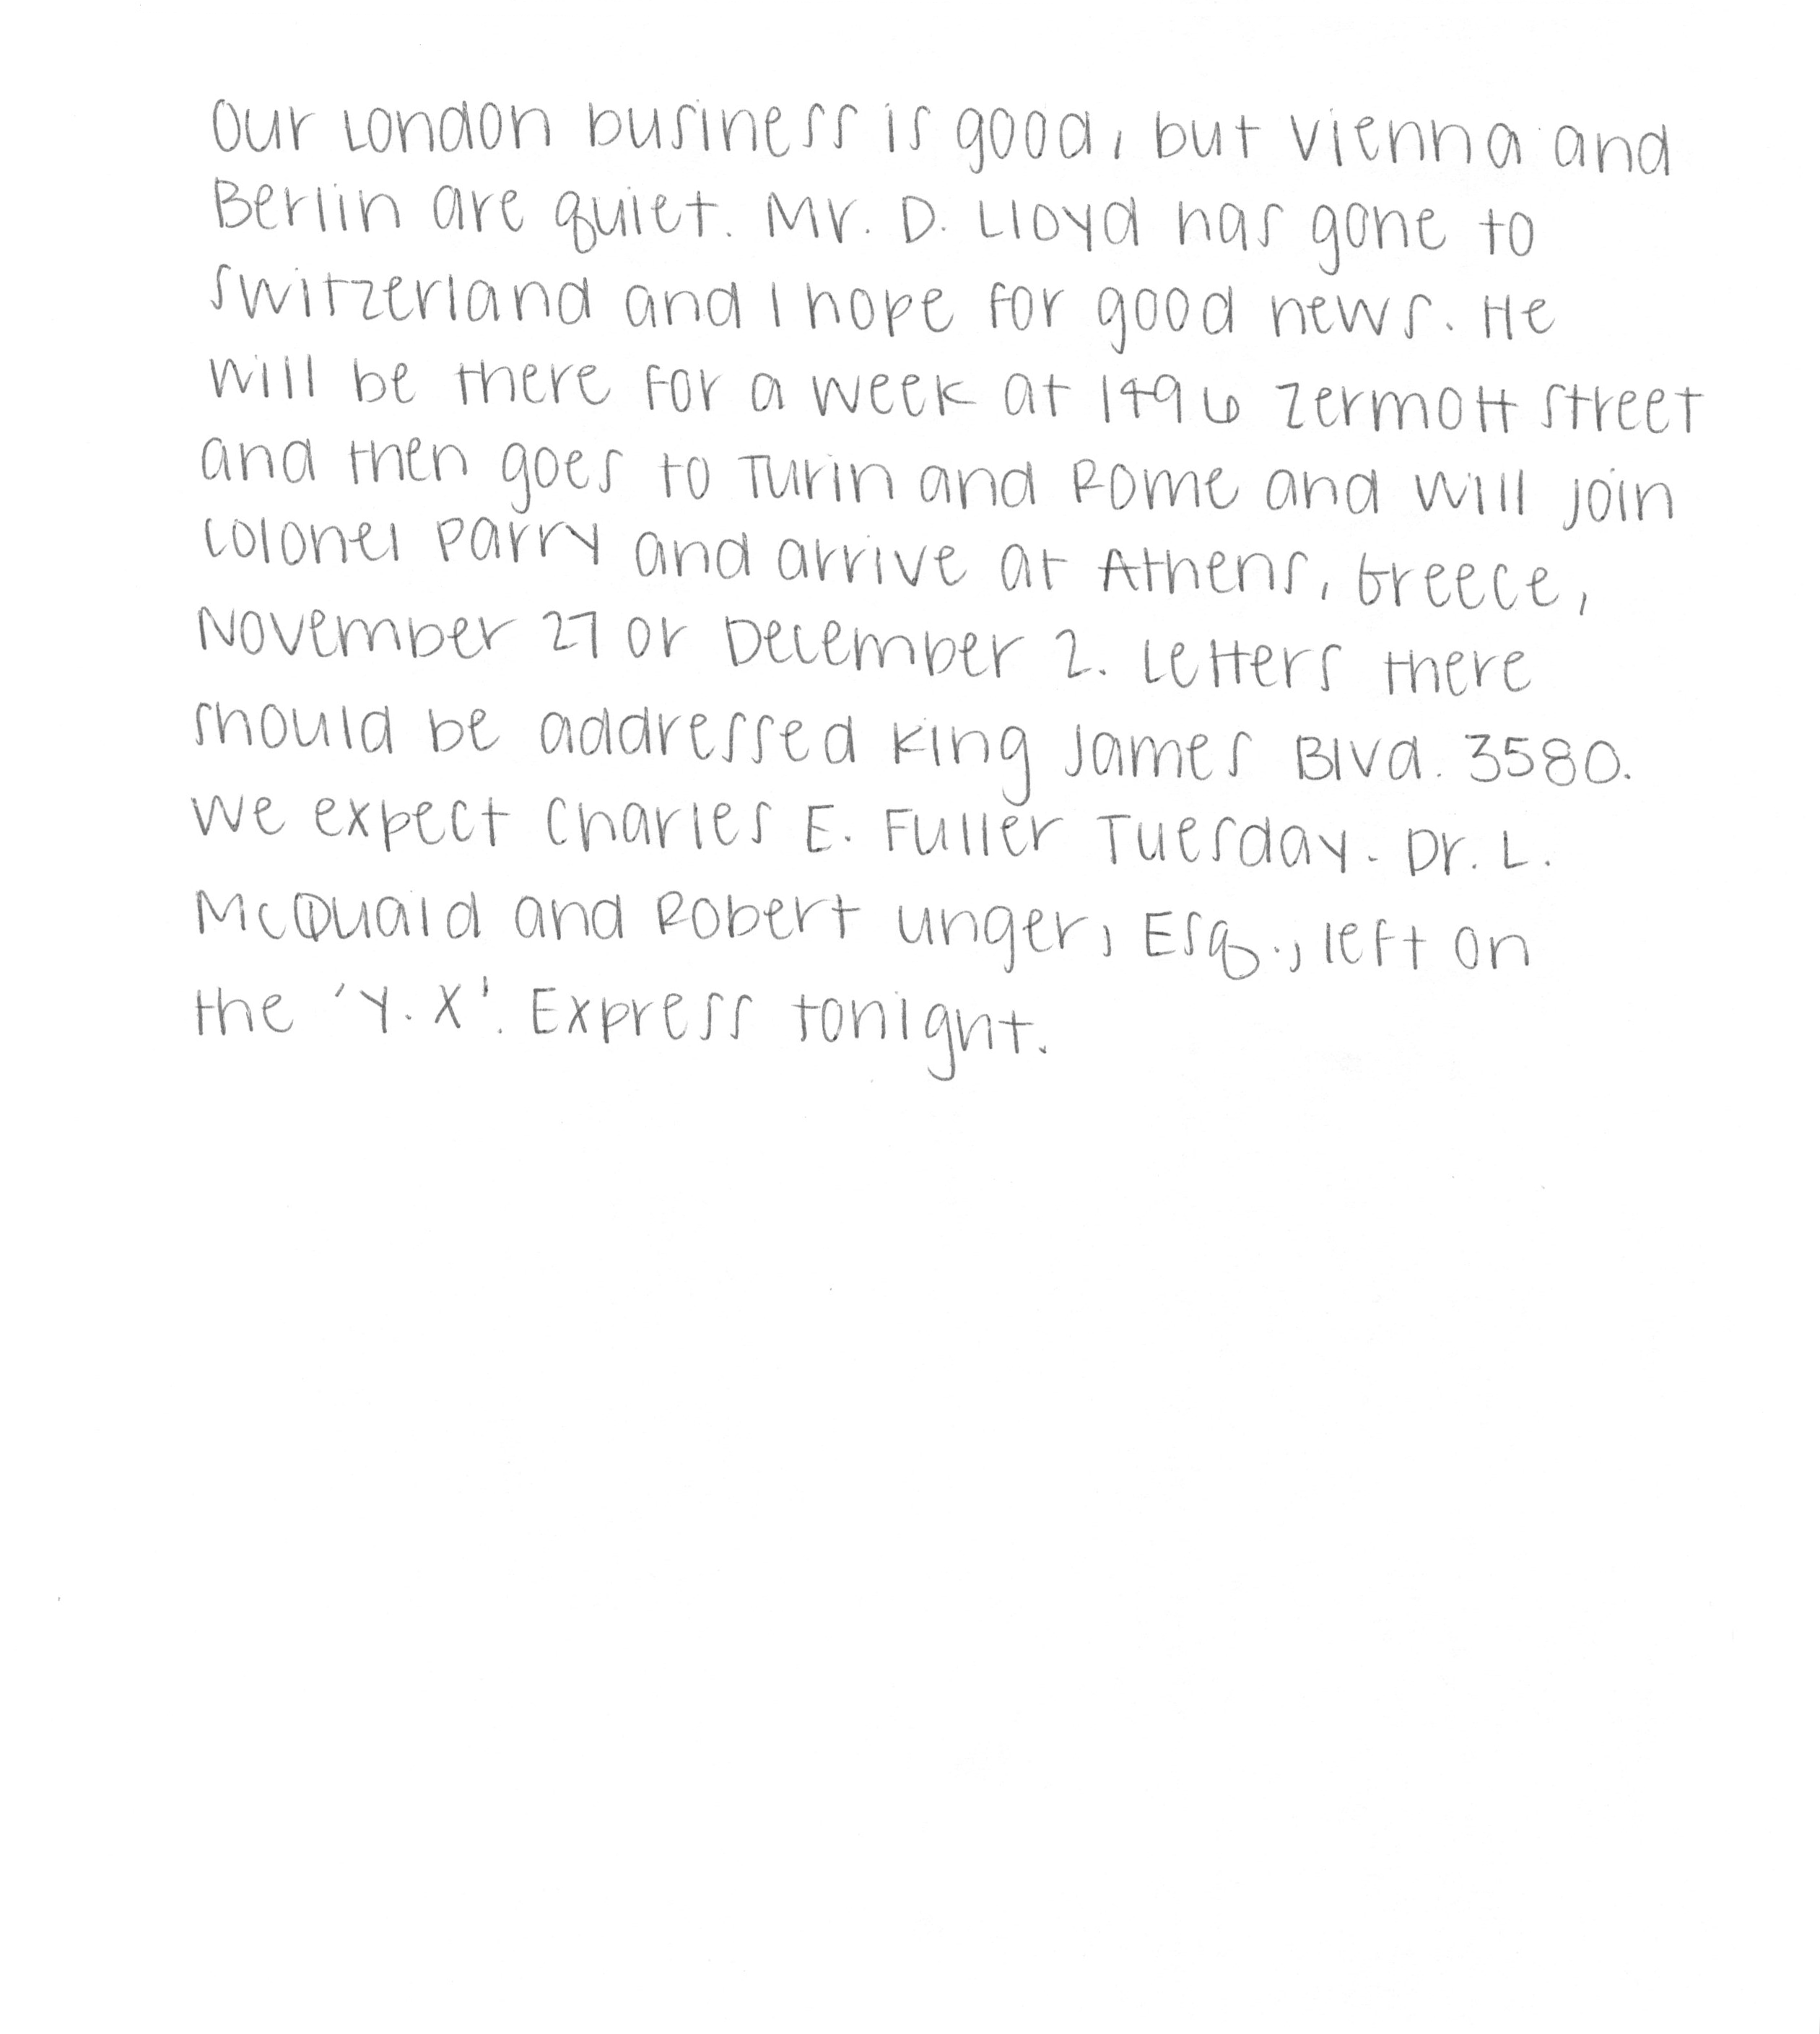 Our London business is good, but Vienna and
Berlin are quiet. Mr. D. Lloyd has gone to
Switzerland and I hope for good news. He
will be there for a week at 1496 Zermott Street
and then goes to Turin and Rome and will join
Colonel Parry and arrive at Athens, Greece,
November 27 or December 2. Letters there
should be addressed King James Blvd. 3580.
We expect Charles E. Fuller Tuesday. Dr. L.
McQuaid and Robert Unger, Esq., left on
the 'Y.X'. Express tonight.